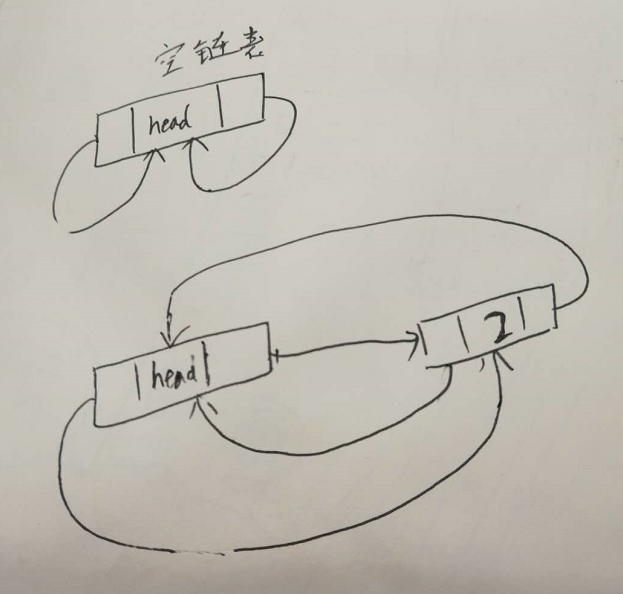 空链表
head
head
2